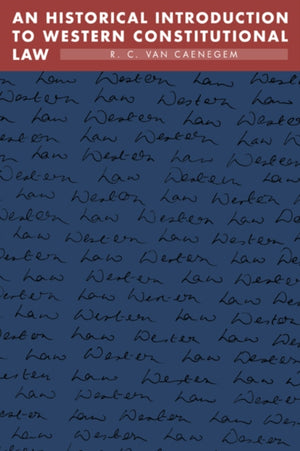 AN HISTORICAL INTRODUCTION
TO WESTERN CONSTITUTIONAL
LAW
R. C. VAN CAENEGEM
Law Western Law Western
Western Law Western Law
Law Western Law Western
Western Law Western Law
Law Western Law Western
Western Law Western Law
Law Western Law Western
Western Law Western Law
Law Western Law Western
Western Law Western Law
Law Western Law Western
Western Law Western Law
Law Western Law Western
Western Law Western Law
Law Western Law Western
Western Law Western Law
Law Western Law Western
Western Law Western Law
Law Western Law Western